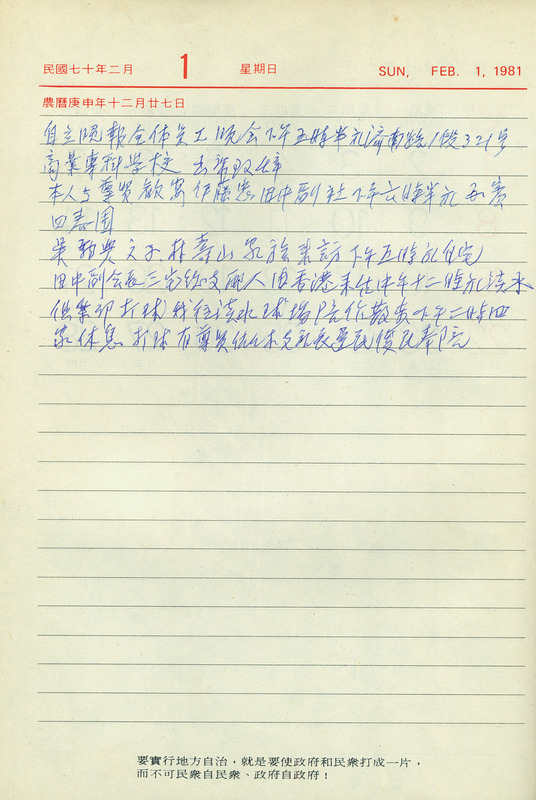 民國七十年二月 1 星期日 SUN, FEB. 1, 1981
農曆庚申年十二月廿七日
自立晚報全体員工晚会下午五時半礼濟南路1段321号
商業專科学校 出席致詞
本人与尊賢歡宴伊藤忠田中副社下午六時半礼
四春園
吳 文子林壽山家族來訪下午五時礼自宅
田中副会長三 支配人由香港來 中午十二時礼淡水
供業即打球 我往淡水球場陪作散步下午二時回
家休息 打球有尊賢佐々木支配長 俊民奉陪
要實行地方自治，就是要使政府和民衆打成一片，
而不可民衆自民衆、政府自政府！